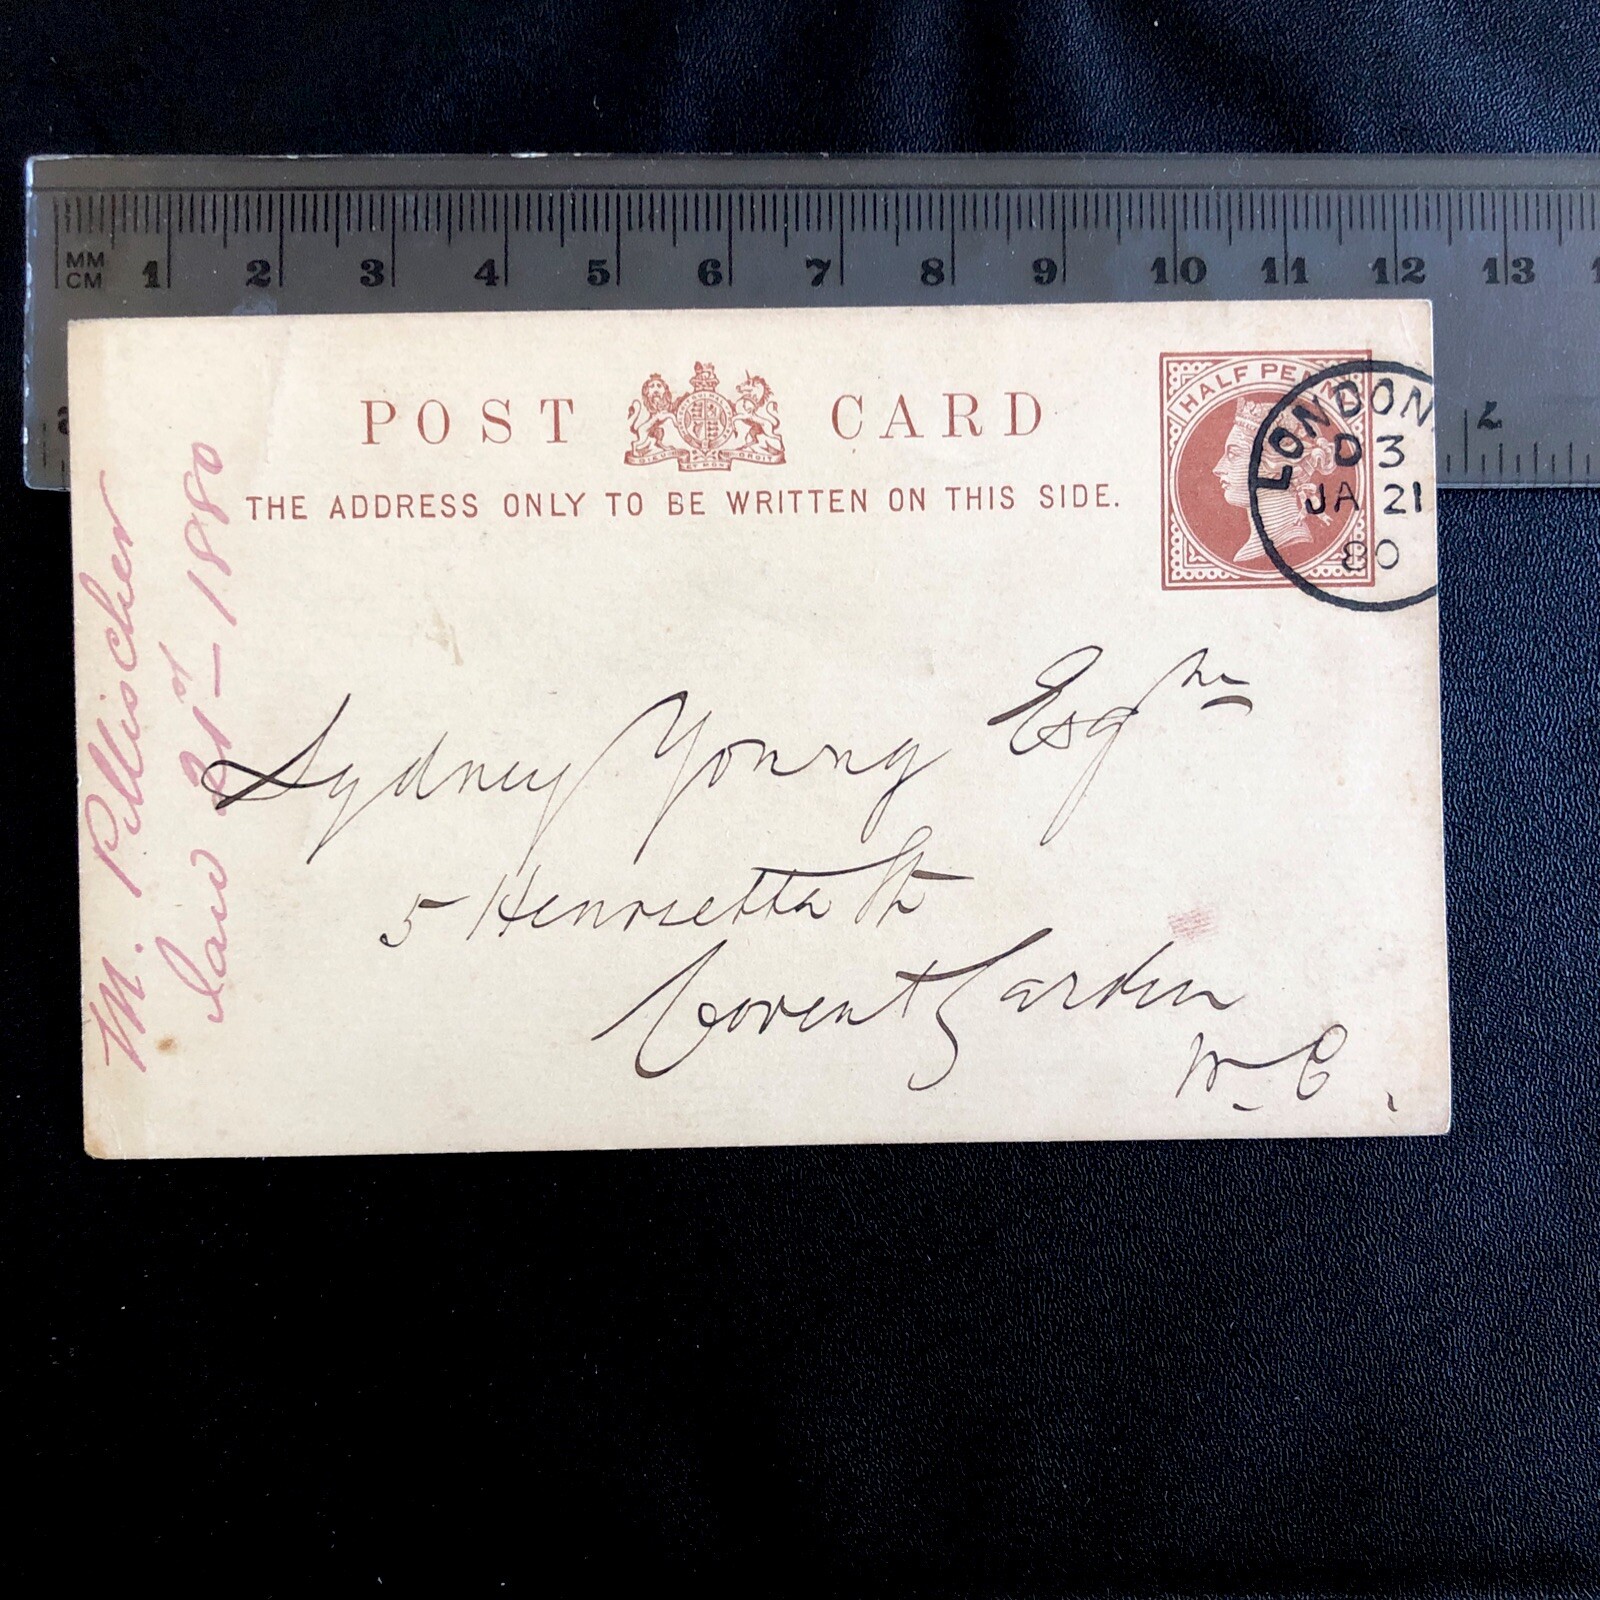 MM
CM 1 2 3 4 5 6 7 8 9 10 11 12 13
7
POST CARD
DIEU ET MON DROIT
THE ADDRESS ONLY TO BE WRITTEN ON THIS SIDE.
HALF PENNY
LONDON
D 3
JA 21
80
M. Pillischer
Jan 21st - 1880
Sydney Young Esqre
5 Henrietta St
Covent Garden
W. C.